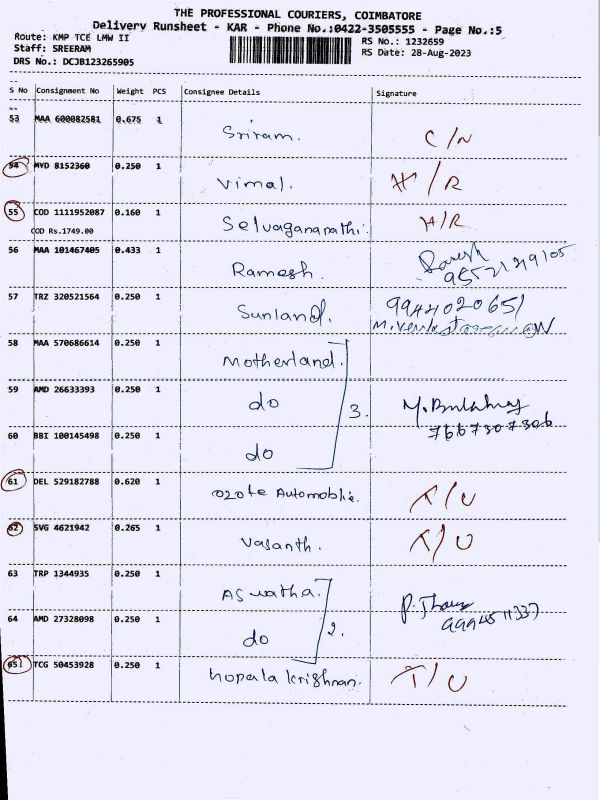 THE PROFESSIONAL COURIERS, COIMBATORE
Delivery Runsheet - KAR - Phone No.:0422-3505555 - Page No.:5
Route: KMP TCE LMW II
RS No.: 1232659
Staff: SREERAM
RS Date: 28-Aug-2023
DRS No.: DCJB123265905
S No Consignment No Weight PCS Consignee Details Signature
53 MAA 600082581 0.675 1 Sriram. C/N
54 MYD 8152360 0.250 1 Vimal. H/R
55 COD 1111952087 0.160 1 Selvaganapathi. H/R
COD Rs.1749.00
56 MAA 101467405 0.433 1 Ramesh.
57 TRZ 320521564 0.250 1 Sunland. 9944020651
58 MAA 570686614 0.250 1 Motherland.
59 AMD 26633393 0.250 1 do 3.
60 BBI 100145498 0.250 1 do 7667307306
61 DEL 529182788 0.620 1 ozote Automoblie. T/U
62 SVG 4621942 0.265 1 Vasanth. T/U
63 TRP 1344935 0.250 1 Aswatha.
64 AMD 27328098 0.250 1 do 2.
65 TCG 50453928 0.250 1 Gopala krishnan. T/U